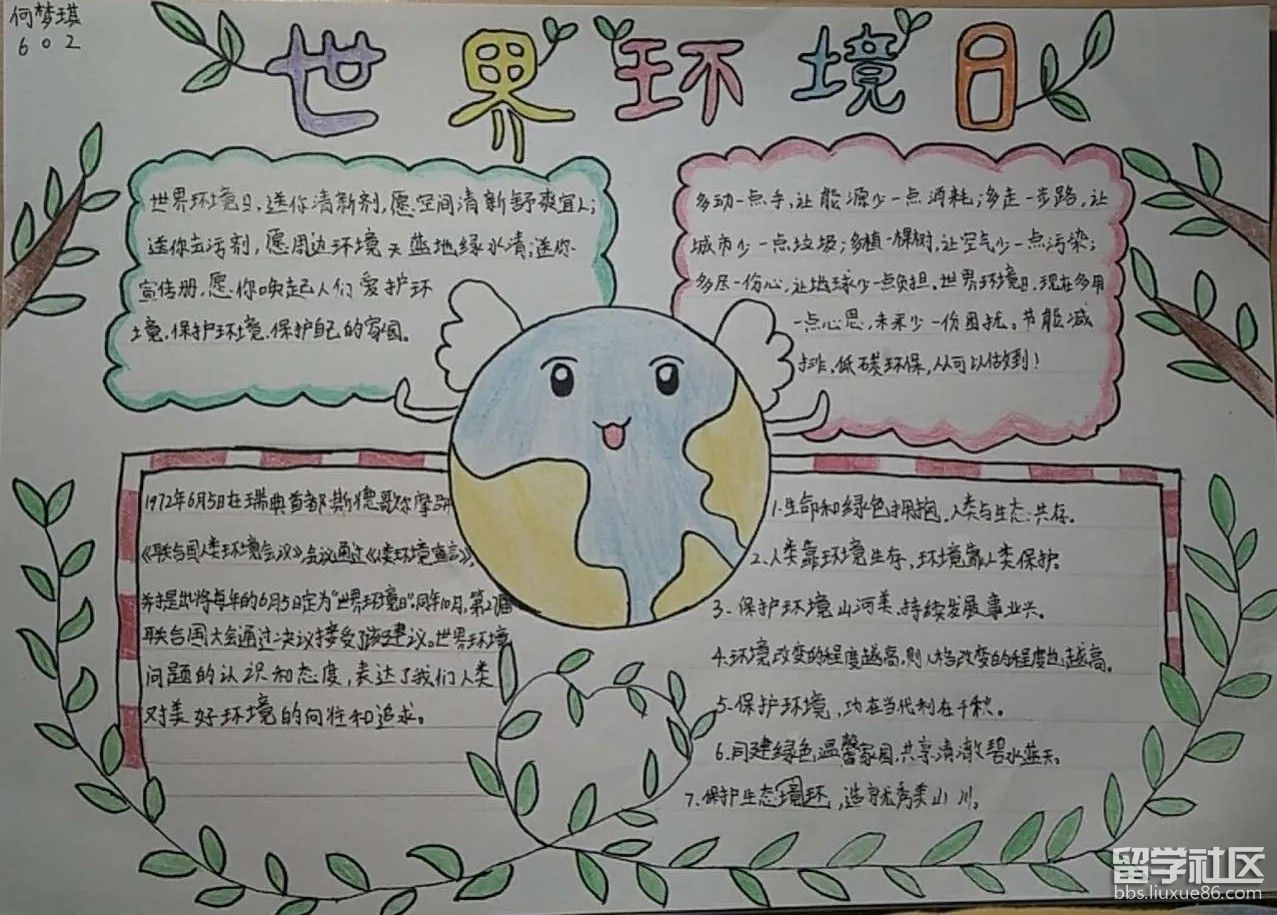 何梦琪
602
世界环境日
世界环境日,送你清新剂,愿空间清新舒爽宜人;
送你去污剂,愿周边环境天蓝地绿水清;送你
宣传册,愿你唤起人们爱护环
境,保护环境,保护自己的家园。
多动一点手,让能源少一点消耗;多走一步路,让
城市少一点垃圾;多植一棵树,让空气少一点污染;
多尽一份心,让地球少一点负担。世界环境日,现在多用
一点心思,未来少一份困扰。节能减
排,低碳环保,从可以做到!
1972年6月5日在瑞典首都斯德歌尔摩
《联合国人类环境会议》,会议通过《人类环境宣言》,
并提出将每年的6月5日定为"世界环境日"。同年10月,第27届
联合国大会通过决议接受了该建议。世界环境
问题的认识和态度,表达了我们人类
对美好环境的向往和追求。
1.生命和绿色拥抱,人类与生态共存。
2.人类靠环境生存,环境靠人类保护。
3.保护环境山河美,持续发展事业兴。
4.环境改变的程度越高,则人格改变的程度也越高。
5.保护环境,功在当代利在千秋。
6.同建绿色温馨家园,共享清澈碧水蓝天。
7.保护生态境环,造就优秀美山川。
留学社区
bbs.liuxue86.com